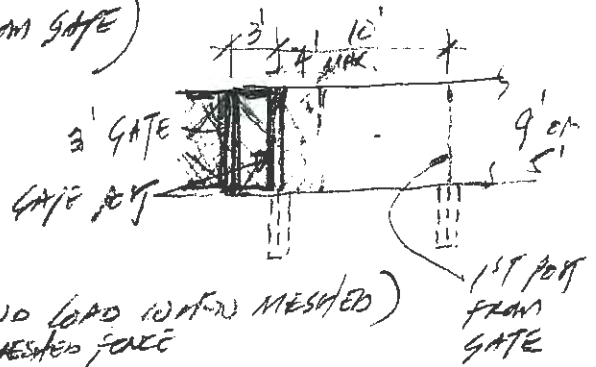 OM GATE)
3'
4'
10'
MAX.
3' GATE
GATE POST
9' OR
5'
1ST POST
FROM
GATE
ND LOAD WHEN MESHED)
MESHED FENCE